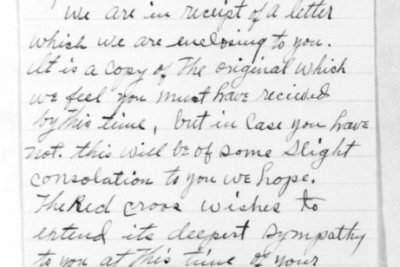 we are in receipt of a letter
which we are enclosing to you.
It is a copy of The original which
we feel you must have recieved
by this time, but in case you have
not. this will be of some slight
consolation to you we hope.
The Red cross wishes to
extend its deepest sympathy
to you at this time of your